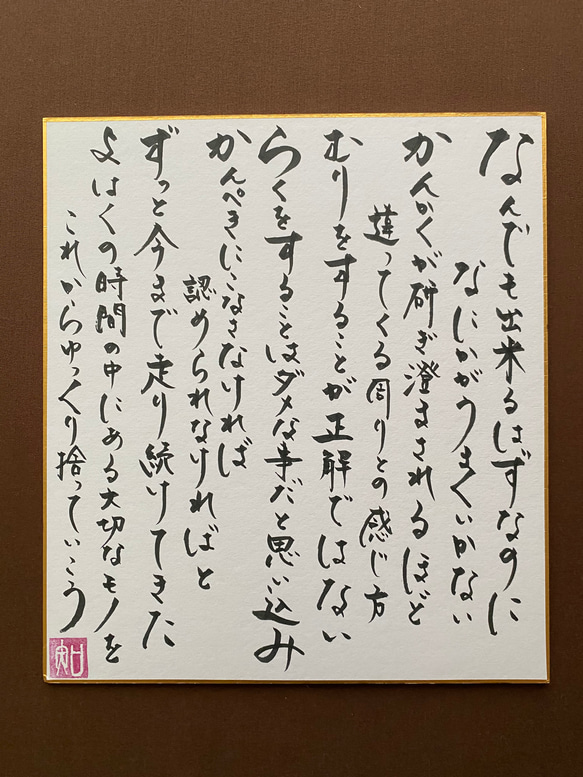 なんでも出来るはずなのに
なにかがうまくいかない
かんかくが研ぎ澄まされるほど
違ってくる周りとの感じ方
むりをすることが正解ではない
らくをすることはダメな事だと思い込み
かんぺきにこなさなければ
認められなければと
ずっと今まで走り続けてきた
よはくの時間の中にある大切なモノを
これからゆっくり拾っていこう